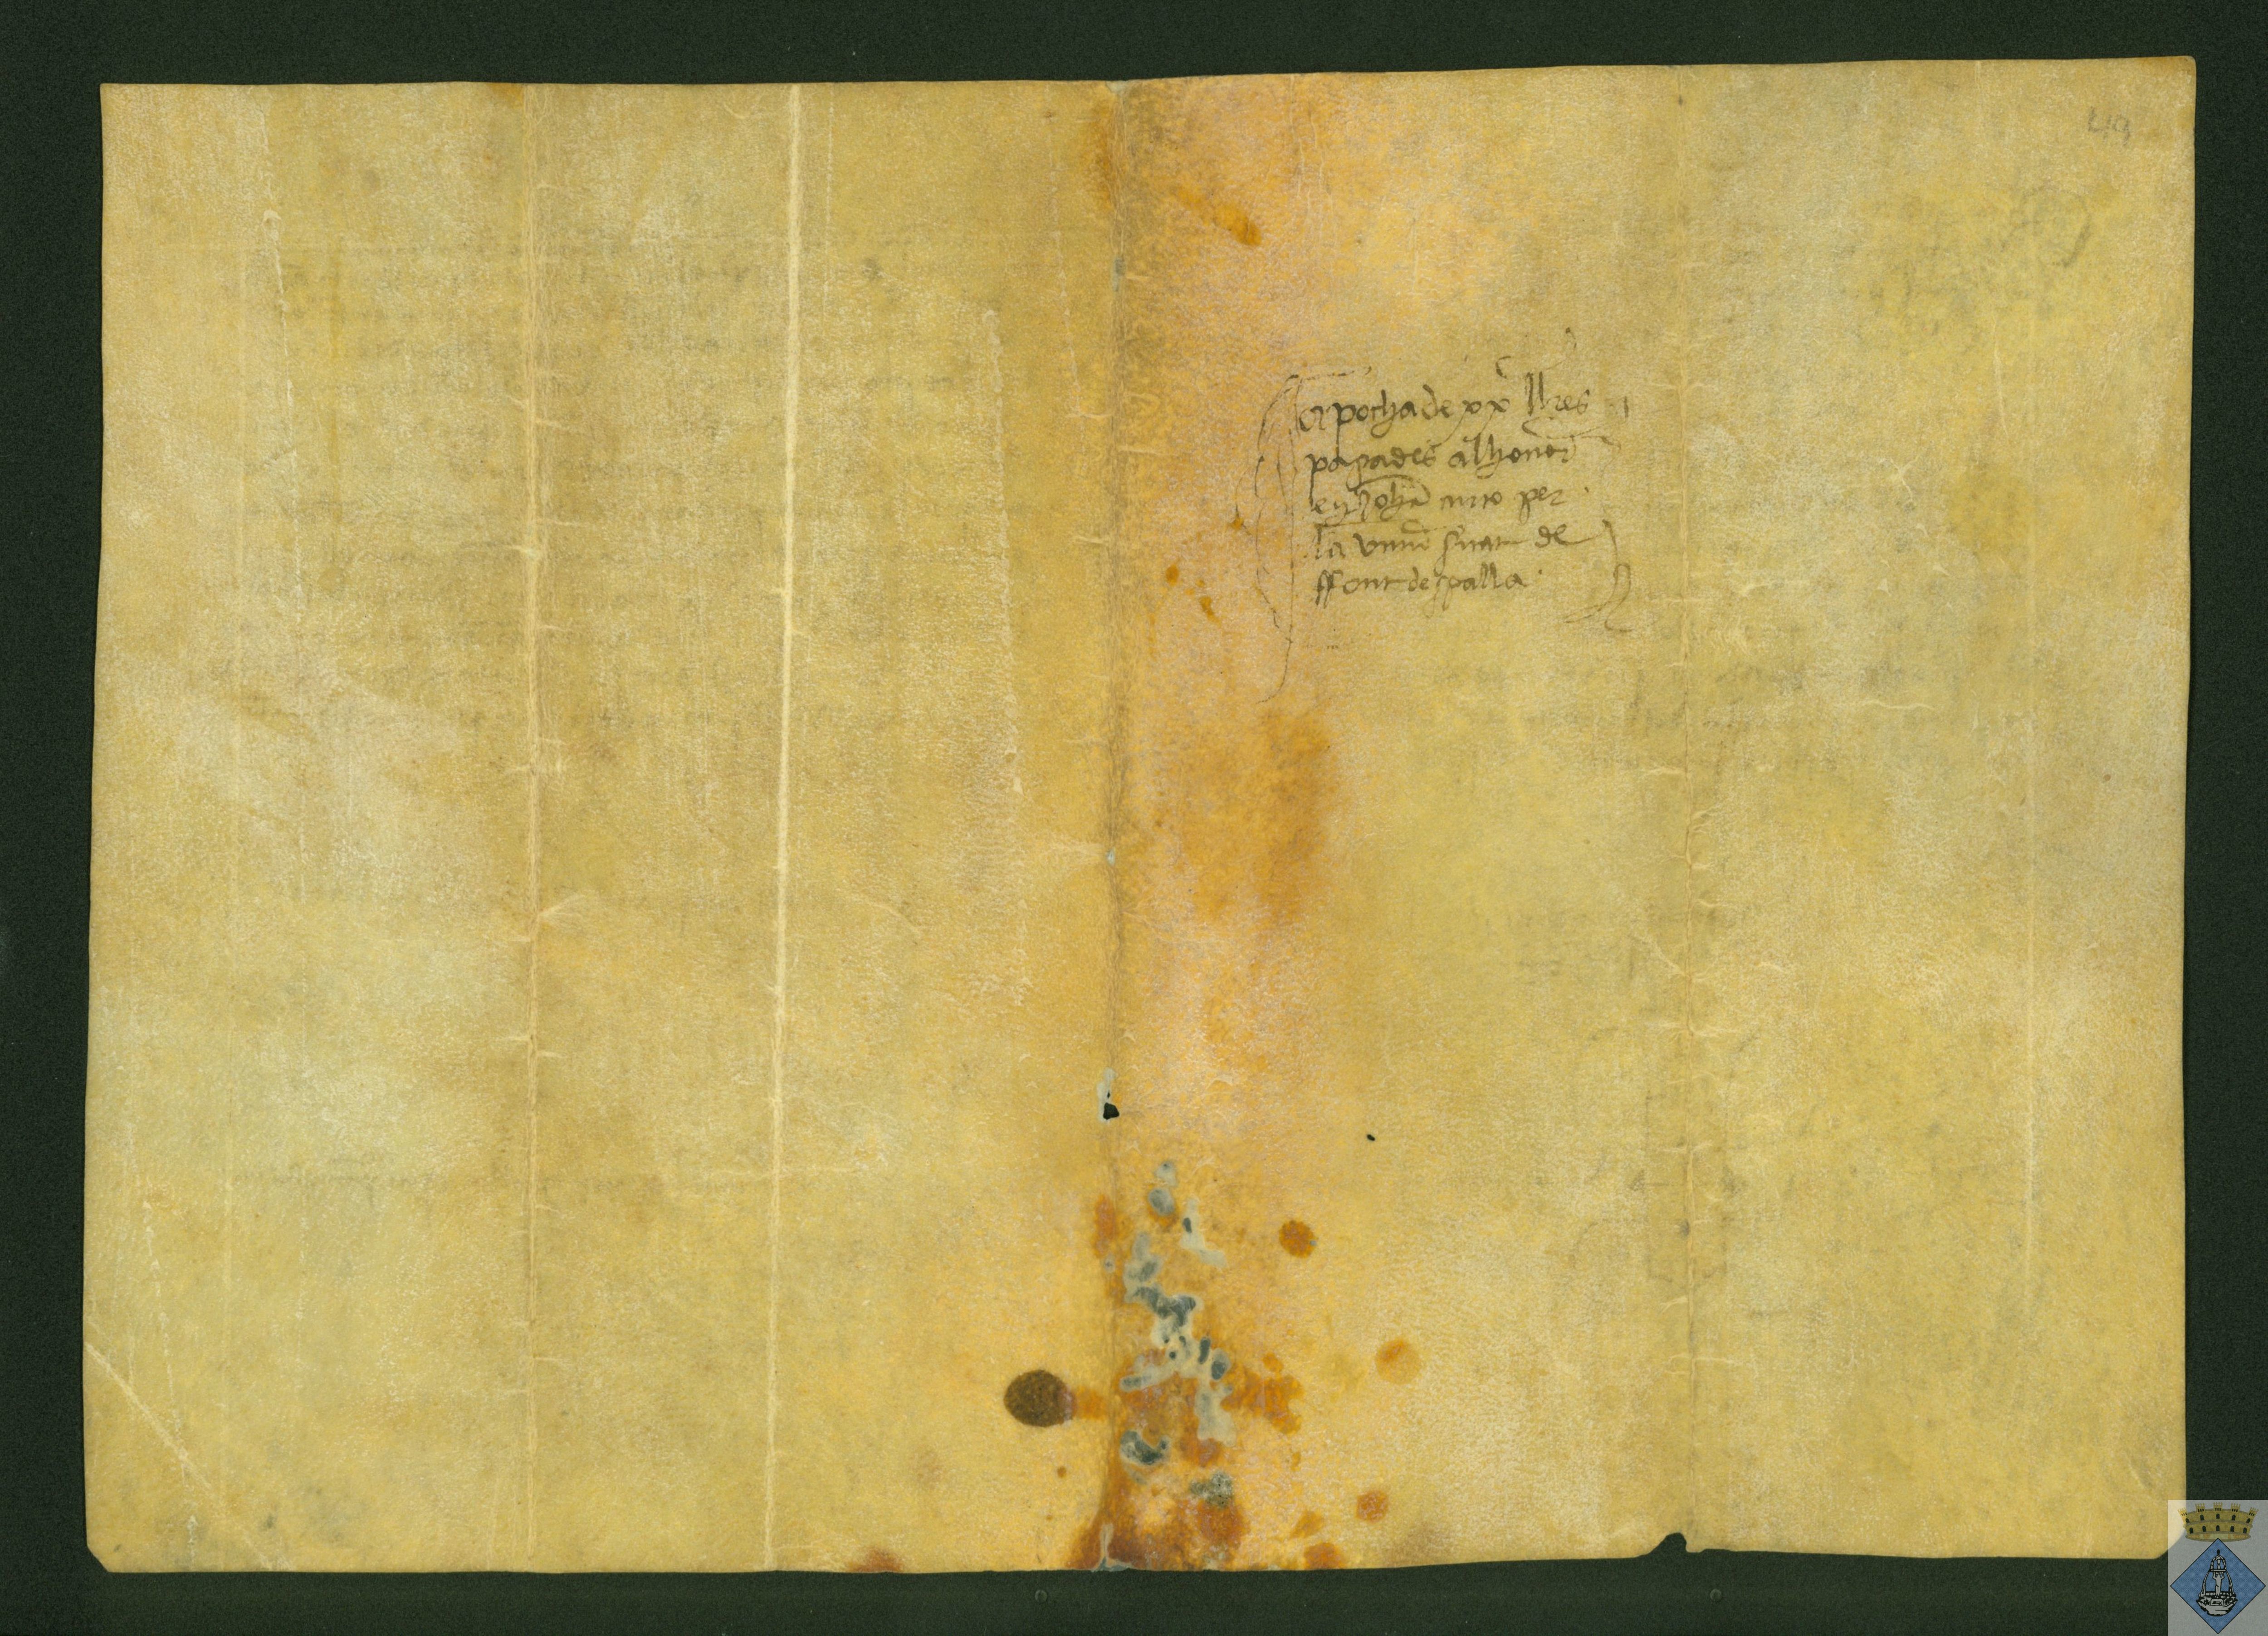 49
apocha de xx llres
pagades al honor
en Johā miro per
la vniu sitat de
ffont despalla